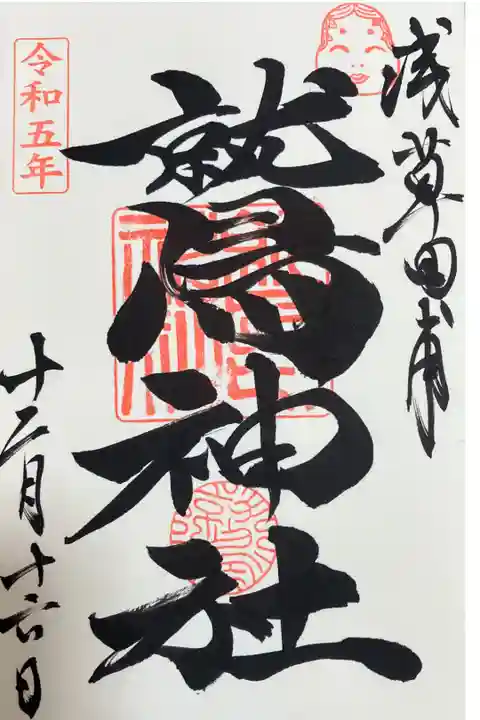 浅草田甫
鷲神社
令和五年
十二月十六日